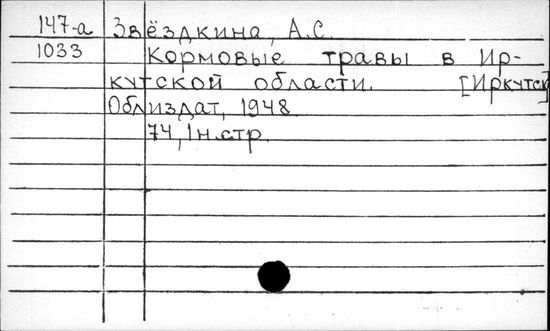 147-а Звёздкина, А.С.
1033 Кормовые травы в Ир-
кутской области. [Иркутск]
Облиздат, 1948.
74, 1 н.стр.